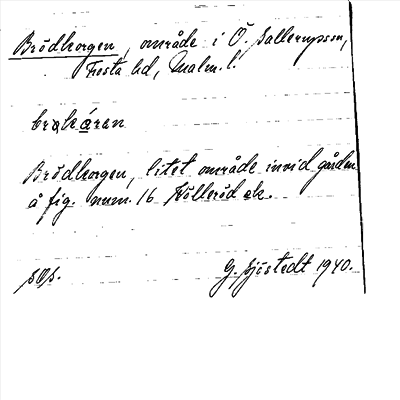 Brödkorgen, område i Ö. Sallerupssn,
Frosta hd, Malm. l.
Brödkorgen, litet område invid gården
å fig. num. 16 Hölleröd ek.
G. Sjöstedt 1940.